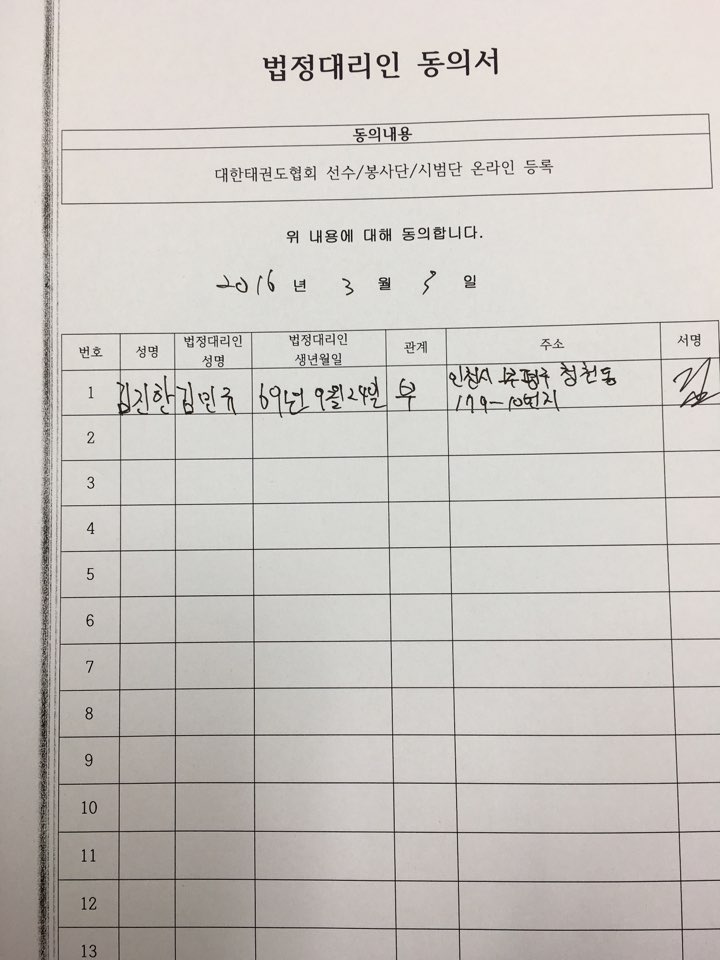 법정대리인 동의서
동의내용
대한태권도협회 선수/봉사단/시범단 온라인 등록
위 내용에 대해 동의합니다.
2016 년 3 월 3 일
번호 성명 법정대리인 성명 법정대리인 생년월일 관계 주소 서명
1 김진한 김민규 69년 9월 24일 부 인천시 부평구 청천동
179-10번지
2
3
4
5
6
7
8
9
10
11
12
13